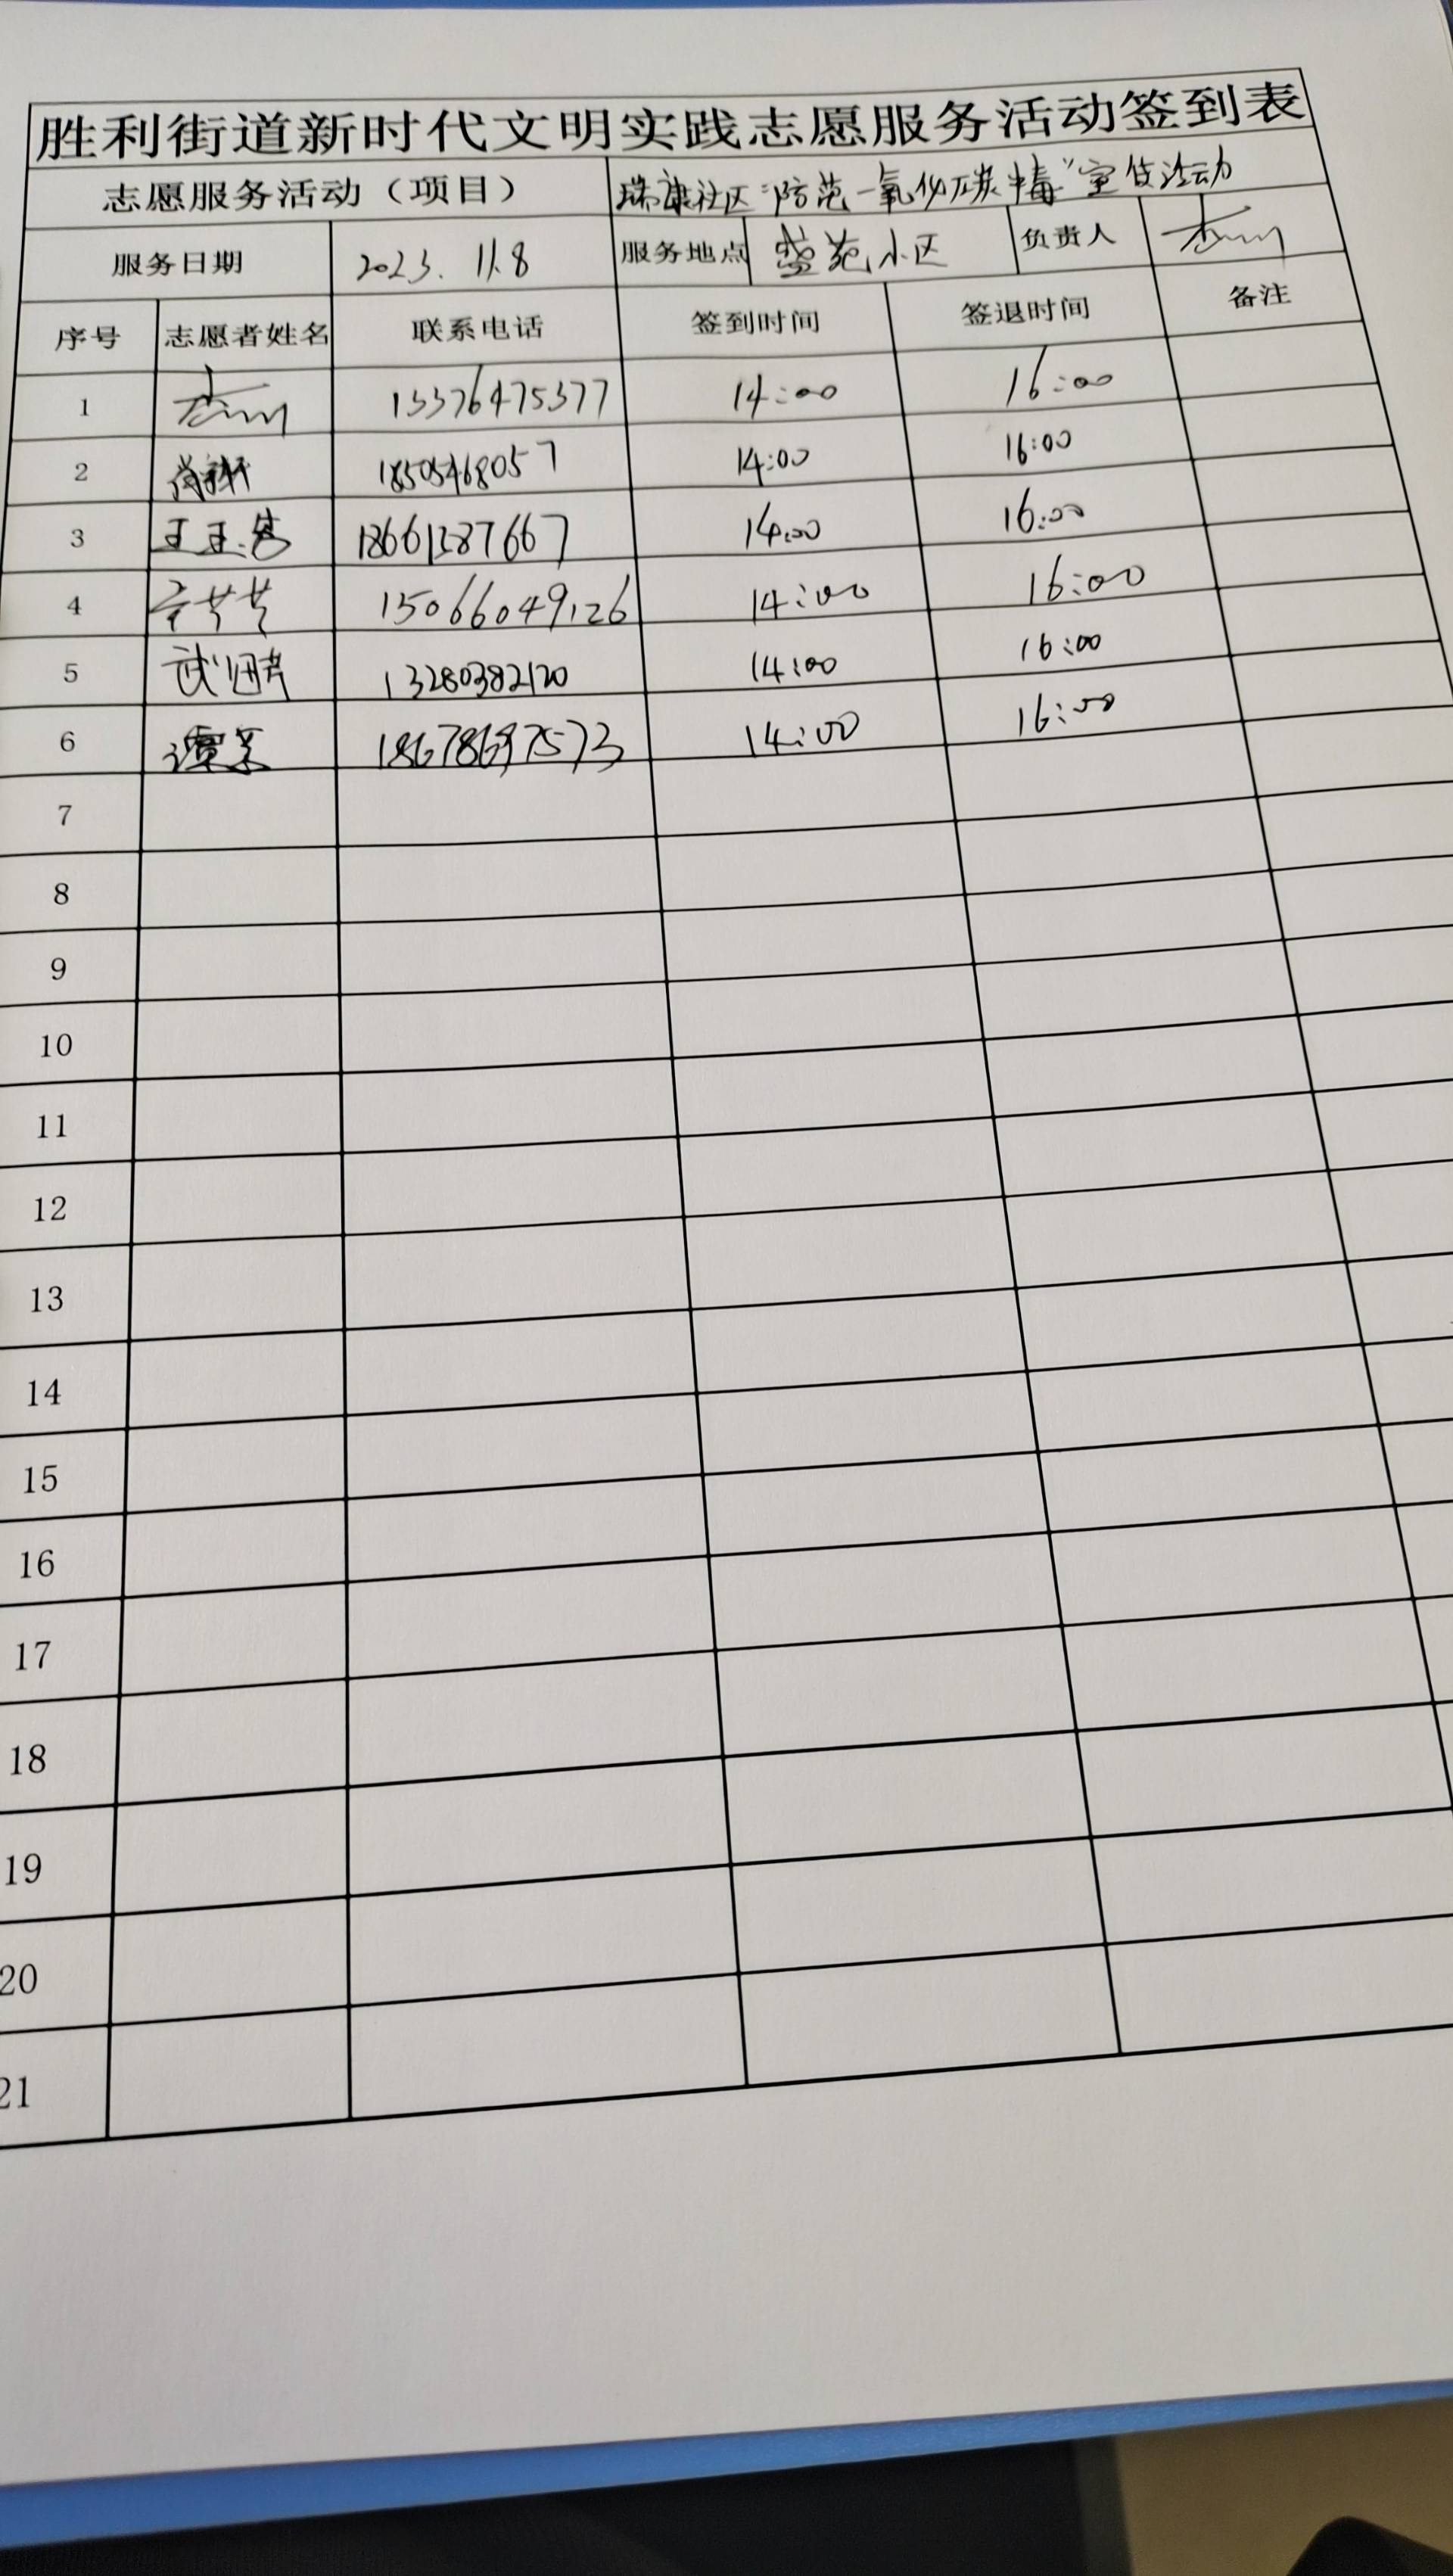 胜利街道新时代文明实践志愿服务活动签到表
志愿服务活动（项目） 瑞康社区“防范一氧化碳中毒”宣传活动
服务日期 2023.11.8 服务地点 盛苑小区 负责人
序号 志愿者姓名 联系电话 签到时间 签退时间 备注
1 13376475377 14:00 16:00
2 18505468057 14:00 16:00
3 14:00 16:00
4 15066049126 14:00 16:00
5 13280382120 14:00 16:00
6 18678697573 14:00 16:00
7
8
9
10
11
12
13
14
15
16
17
18
19
20
21